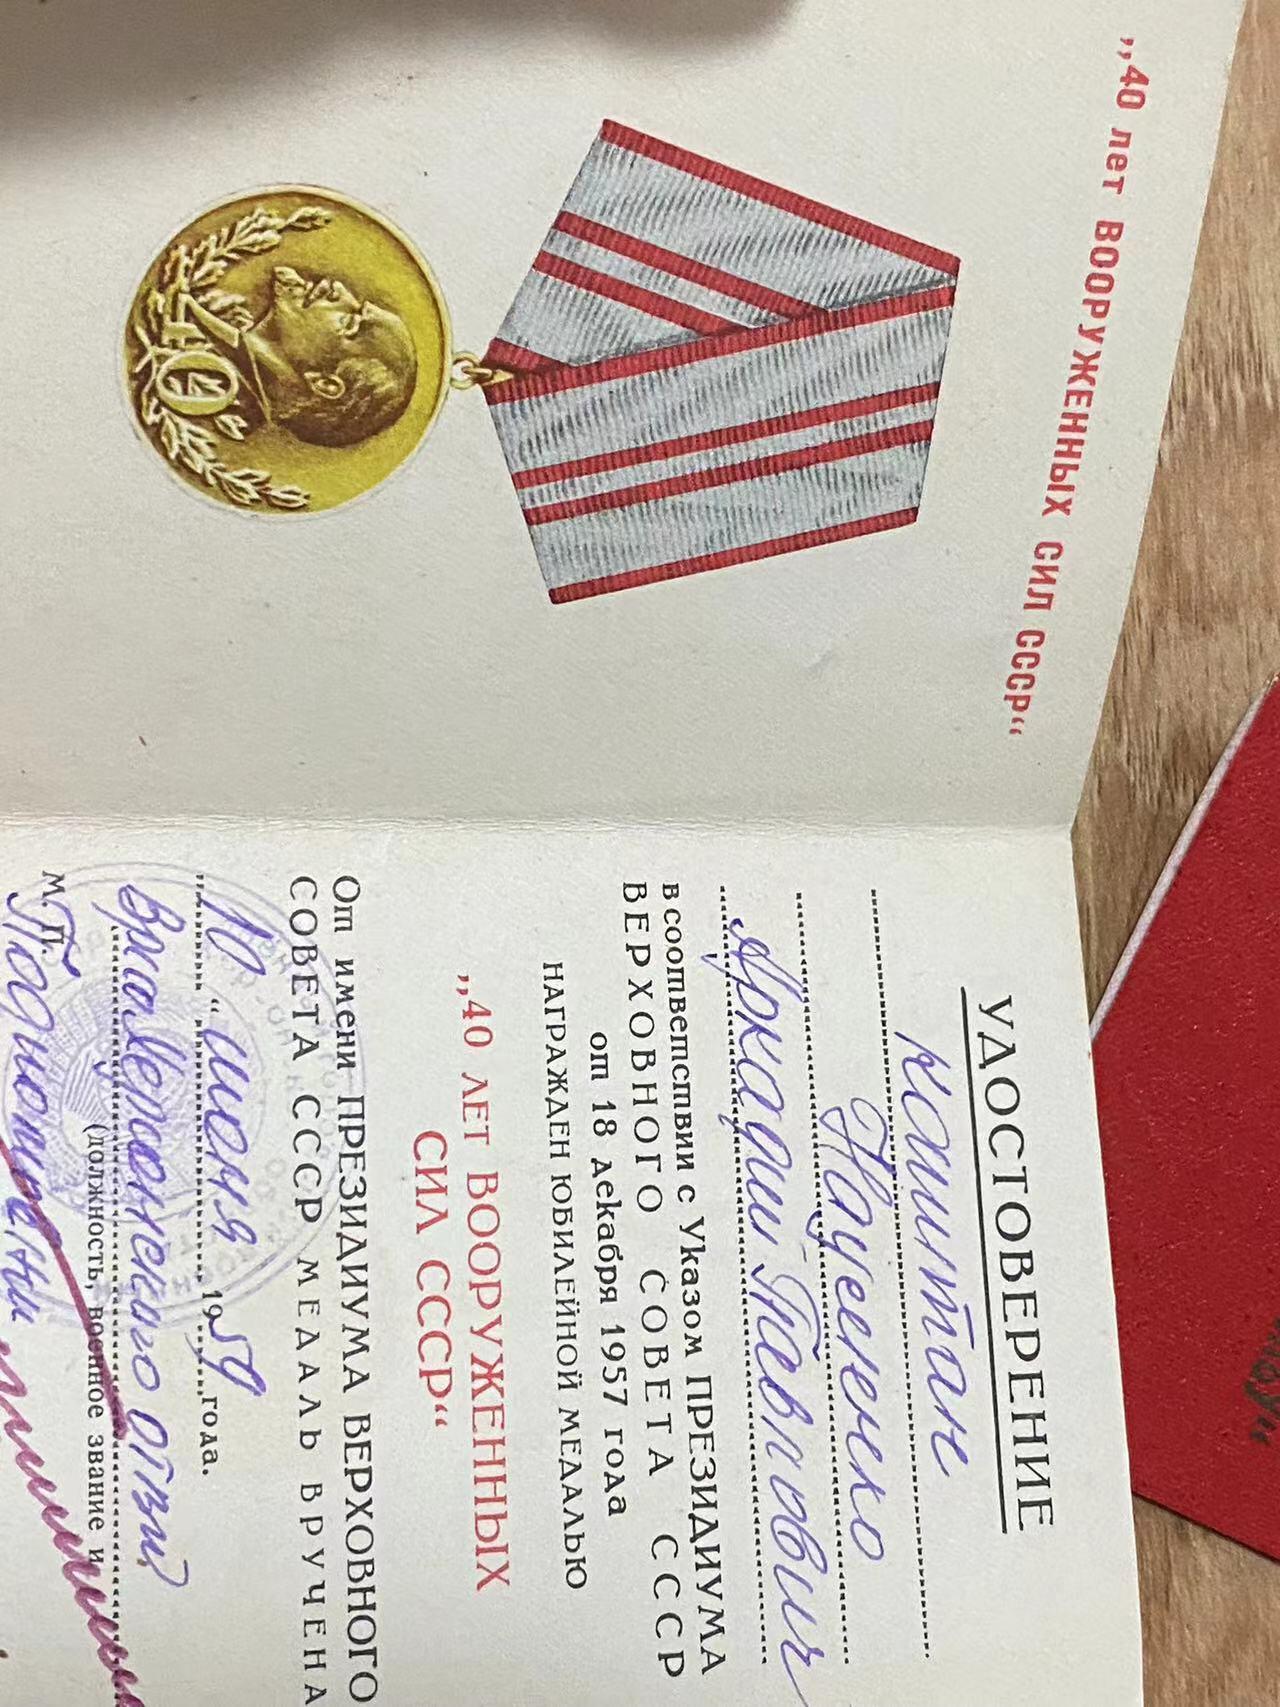 „40 лет ВООРУЖЕННЫХ СИЛ СССР“
УДОСТОВЕРЕНИЕ
капитан
Науменко
Аркадий Павлович
в соответствии с Указом ПРЕЗИДИУМА
ВЕРХОВНОГО СОВЕТА СССР
от 18 декабря 1957 года
НАГРАЖДЕН ЮБИЛЕЙНОЙ МЕДАЛЬЮ
„40 ЛЕТ ВООРУЖЕННЫХ
СИЛ СССР“
От имени ПРЕЗИДИУМА ВЕРХОВНОГО
СОВЕТА СССР МЕДАЛЬ ВРУЧЕНА
„10“ июня 1959 года.
(должность, военное звание и
М. П.